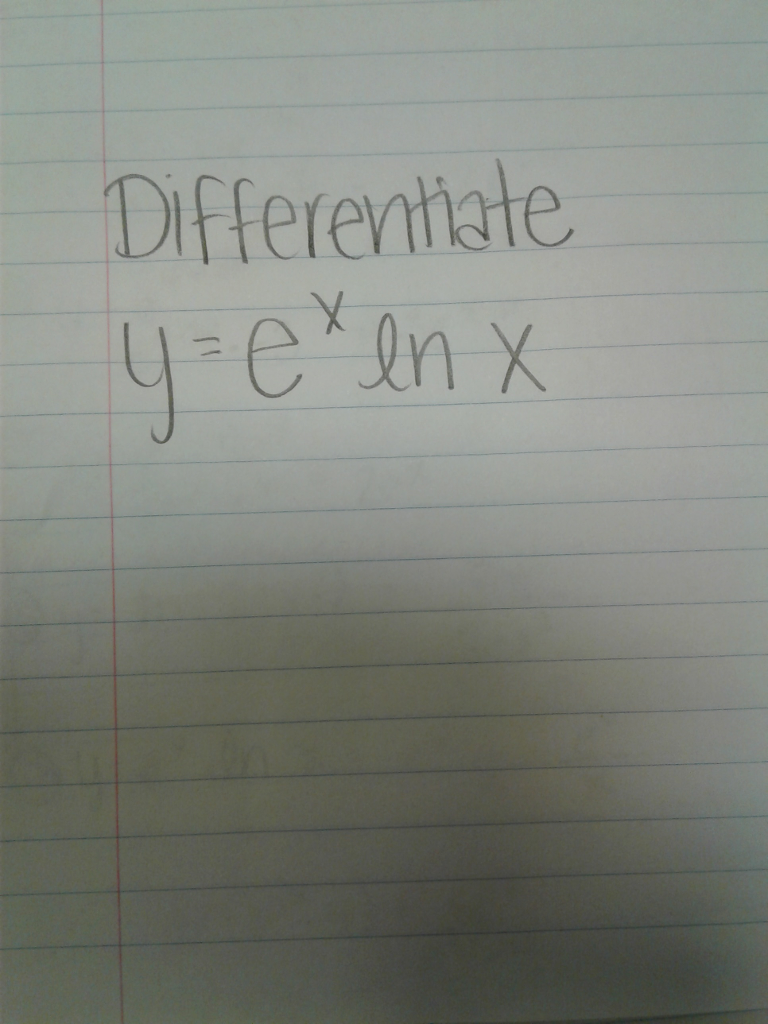 Differentiate
y = e^x ln x